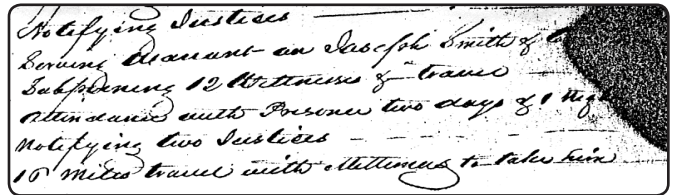 Notifying Justices
Serving Warrant on Joseph Smith &
Subpoening 12 Witnesses & travel
Attendance with Prisoner two days & 1 nigh
Notifying two Justices
10 miles travel with Mittimus to take him